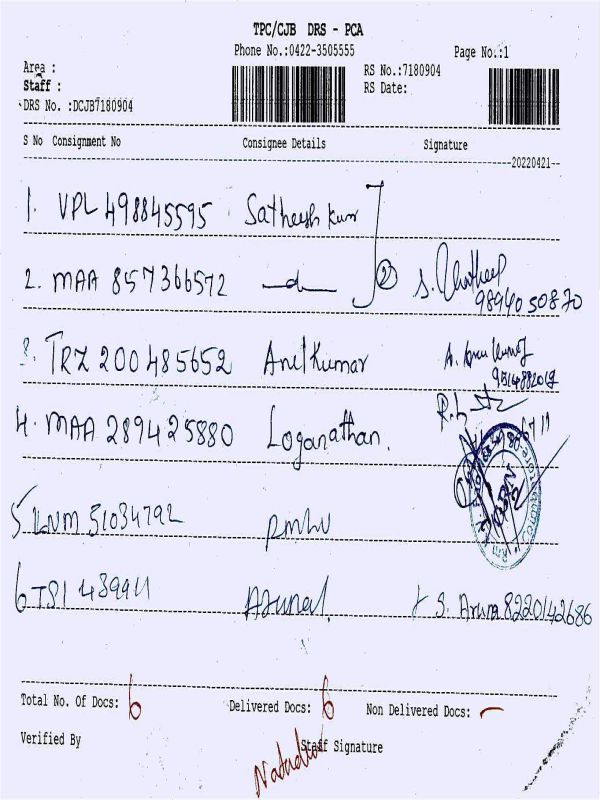 TPC/CJB DRS - PCA
Phone No.:0422-3505555
Page No.:1
Area :
RS No.:7180904
Staff :
RS Date:
DRS No. :DCJB7180904
S No Consignment No Consignee Details Signature
20220421
1. VPL 498845595 Satheesh kumr
2. MAA 857366572 —d— 2 S.
9894050870
3. TRZ 200485652 Anilkumar
9514882019
4. MAA 289425880 Loganathan.
5 KNM 51034792
6 TSI 48994 S. Aruna 8220142686
Total No. Of Docs: 6 Delivered Docs: 6 Non Delivered Docs: -
Verified By Staff Signature